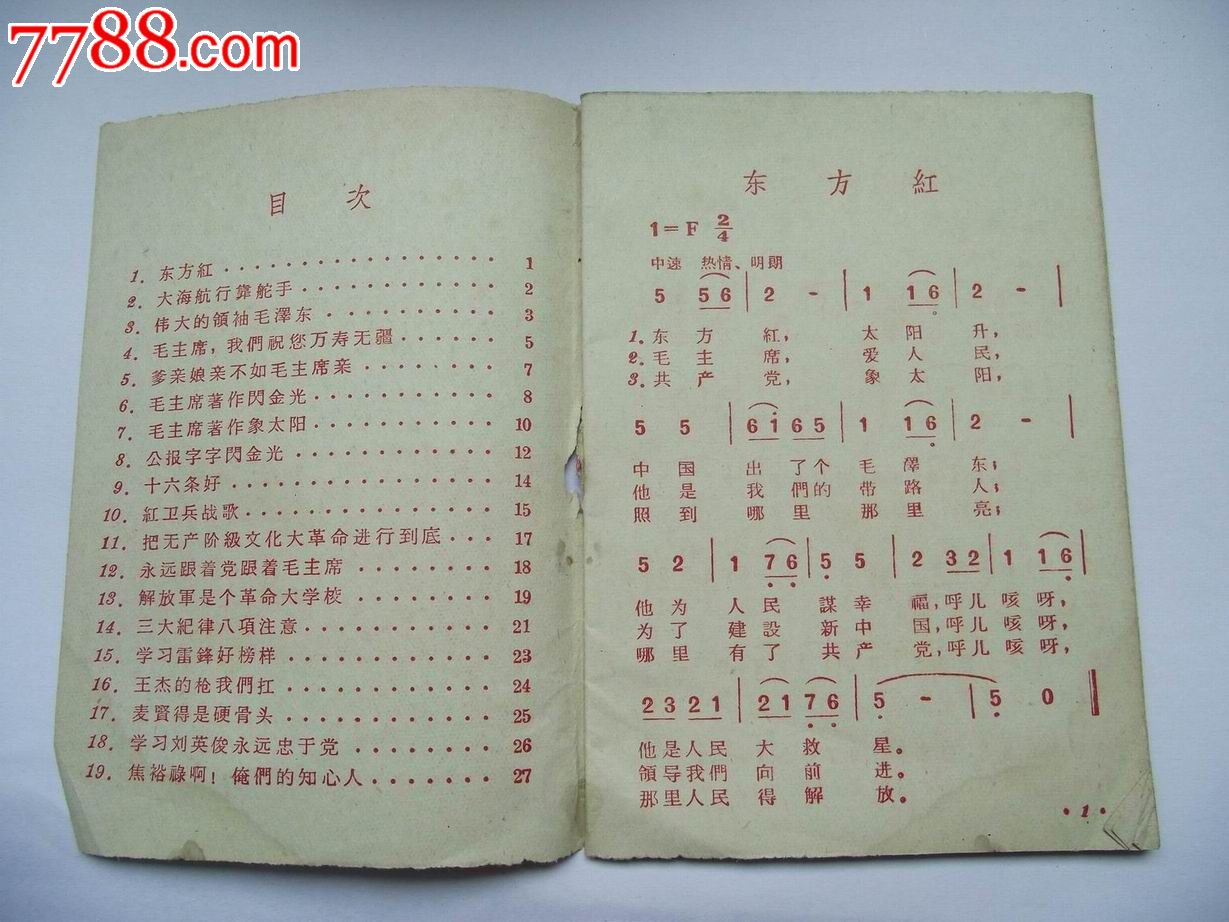 7788.com
目 次
1. 东方紅 ················ 1
2. 大海航行靠舵手 ············ 2
3. 伟大的領袖毛澤东 ··········· 3
4. 毛主席，我們祝您万寿无疆 ······· 5
5. 爹亲娘亲不如毛主席亲 ········· 7
6. 毛主席著作閃金光 ··········· 8
7. 毛主席著作象太阳 ··········· 10
8. 公报字字閃金光 ············ 12
9. 十六条好 ··············· 14
10. 紅卫兵战歌 ·············· 15
11. 把无产阶級文化大革命进行到底 ··· 17
12. 永远跟着党跟着毛主席 ········ 18
13. 解放軍是个革命大学校 ········ 19
14. 三大紀律八項注意 ·········· 21
15. 学习雷鋒好榜样 ··········· 23
16. 王杰的枪我們扛 ··········· 24
17. 麦賢得是硬骨头 ··········· 25
18. 学习刘英俊永远忠于党 ········ 26
19. 焦裕祿啊！俺們的知心人 ······· 27
东 方 紅
1=F 2/4
中速 热情、明朗
5 56 | 2 - | 1 16 | 2 - |
1. 东 方 紅， 太 阳 升，
2. 毛 主 席， 爱 人 民，
3. 共 产 党， 象 太 阳，
5 5 | 61 65 | 1 16 | 2 - |
中 国 出 了 个 毛 澤 东；
他 是 我 們 的 带 路 人；
照 到 哪 里 那 里 亮；
5 2 | 1 76 | 5 5 | 2 32 | 1 16 |
他 为 人 民 謀 幸 福，呼 儿 咳 呀，
为 了 建 設 新 中 国，呼 儿 咳 呀，
哪 里 有 了 共 产 党，呼 儿 咳 呀，
23 21 | 21 76 | 5 - | 5 0 ‖
他 是 人 民 大 救 星。
領 导 我 們 向 前 进。
那 里 人 民 得 解 放。
· 1 ·